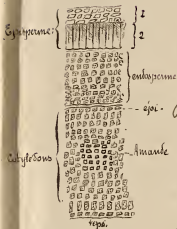 1
Episperme:
2
endosperme
épi.
Cotylédons
Amande
épi.